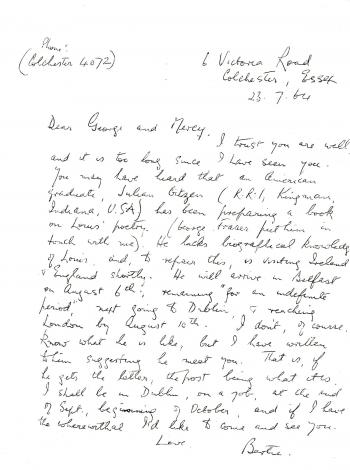 Phone:
(Colchester 4072)
6 Victoria Road
Colchester, Essex
23.7.64
Dear George and Mercy,
I trust you are well
and it is too long since I have seen you.
You may have heard that an American
graduate, Julian Gitzen (R.R.1, Kingman,
Indiana, U.S.A) has been preparing a book
on Louis' poetry. (George Fraser put him in
touch with me) He lacks biographical knowledge
of Louis and, to repair this, is visiting Ireland
& England shortly. He will arrive in Belfast
on August 6th, remaining "for an indefinite
period," next going to Dublin, & reaching
London by August 10th. I don't, of course,
know what he is like, but I have written
to him suggesting he meet you. That is, if
he gets the letter, the post being what it is.
I shall be in Dublin, on a job, at the end
of Sept, beginning of October, and if I have
the wherewithal I'd like to come and see you.
Love,
Bertie.